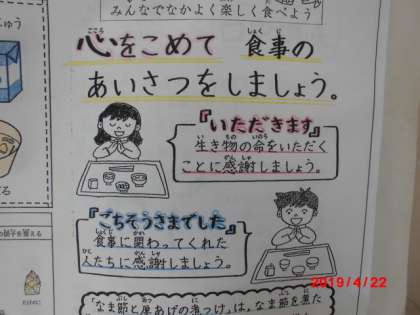 みんなでなかよく楽しく食べよう
心をこめて 食事の
あいさつをしましょう。
『いただきます』
生き物の命をいただく
ことに感謝しましょう。
『ごちそうさまでした』
食事に関わってくれた
人たちに感謝しましょう。
「なま節と厚あげの煮つけ」は、なま節を煮た
2019/4/22